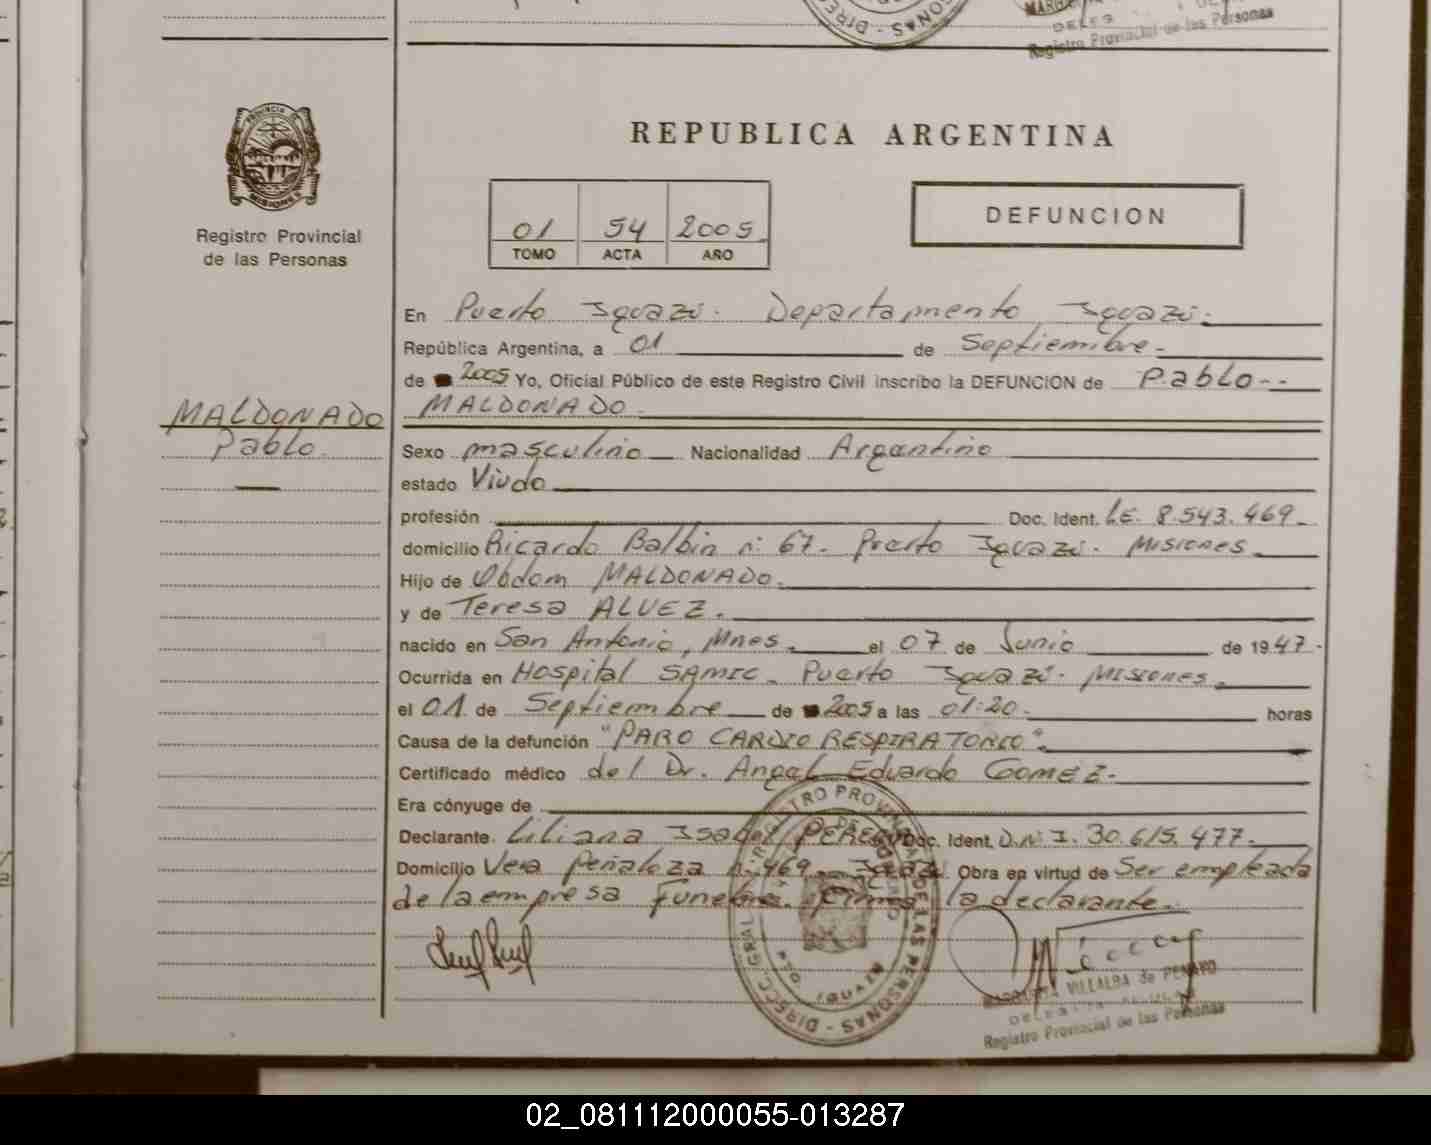 Registro Provincial de las Personas
REPUBLICA ARGENTINA
01 54 2005
TOMO ACTA AÑO
DEFUNCION
PROVINCIA DE
MISIONES
Registro Provincial
de las Personas
En Puerto Iguazú. Departamento Iguazú.
República Argentina, a 01 de Septiembre.
de 2005 Yo, Oficial Público de este Registro Civil inscribo la DEFUNCION de Pablo
MALDONADO
MALDONADO
Pablo.
Sexo masculino Nacionalidad Argentino
estado Viudo
profesión Doc. Ident. L.E. 8.543.469
domicilio Ricardo Balbin nº 67. Puerto Iguazú. MISIONES
Hijo de Obdom MALDONADO.
y de Teresa ALVEZ.
nacido en San Antonio, Mnes. el 07 de Junio de 1947.
Ocurrida en Hospital SAMIC. Puerto Iguazú. MISIONES.
el 01 de Septiembre de 2005 a las 01:20. horas
Causa de la defunción "PARO CARDIO RESPIRATORIO".
Certificado médico del Dr. Angel Eduardo GOMEZ.
Era cónyuge de
Declarante. Liliana Isabel Doc. Ident. D.N.I. 30.615.477.
Domicilio Vera Peñaloza nº 469 Iguazú. Obra en virtud de Ser empleada
de la empresa Funebre. Firma la declarante.
REGISTRO PROVINCIAL DE LAS PERSONAS - DIREC. GRAL.
IGUAZU
VILLALBA de PENAYO
Registro Provincial de las Personas
02_081112000055-013287